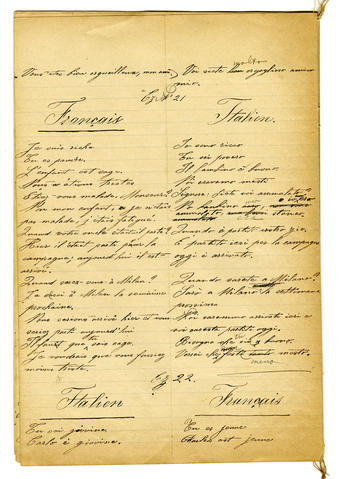 Vous êtes bien orgueilleux, mon ami. Voi siete molto orgoglioso amico
mio.
Ex. Nº 21
Français
Je suis riche
Tu es pauvre.
L'enfant est sage.
Nous étions tristes
Etiez-vous malade, Monsieur?
Non mon enfant, je n'étais
pas malade, j'étais fatigué.
Quand votre oncle était-il parti?
Hier il était parti pour la
campagne; aujourd'hui il est
arrivé.
Quand serez-vous à Milan?
Je serai à Milan la semaine
prochaine.
Nous serions arrivé hier et vous
seriez parti aujourd'hui
Il faut que tu sois sage.
Je voudrais que vous fussiez
moins triste.
Italien.
Io sono ricco
Tu sei povero
Il bambino è buono.
Noi eravamo mesti
Signore, siete voi ammalato?
No bambino
ammalato, stanco.
Quando è partito vostro zio.
È partito ieri per la campagna
oggi è arrivato.
Quando sarete a Milano?
Sarò a Milano la settimana
prossima
Noi saremmo arrivati ieri e
voi sareste partiti oggi.
Bisogna che sia buono.
Vorrei che foste meno mesto.
Ex 22.
Italien
Tu sei giovine.
Carlo è giovine.
Français
Tu es jeune
Charles est jeune